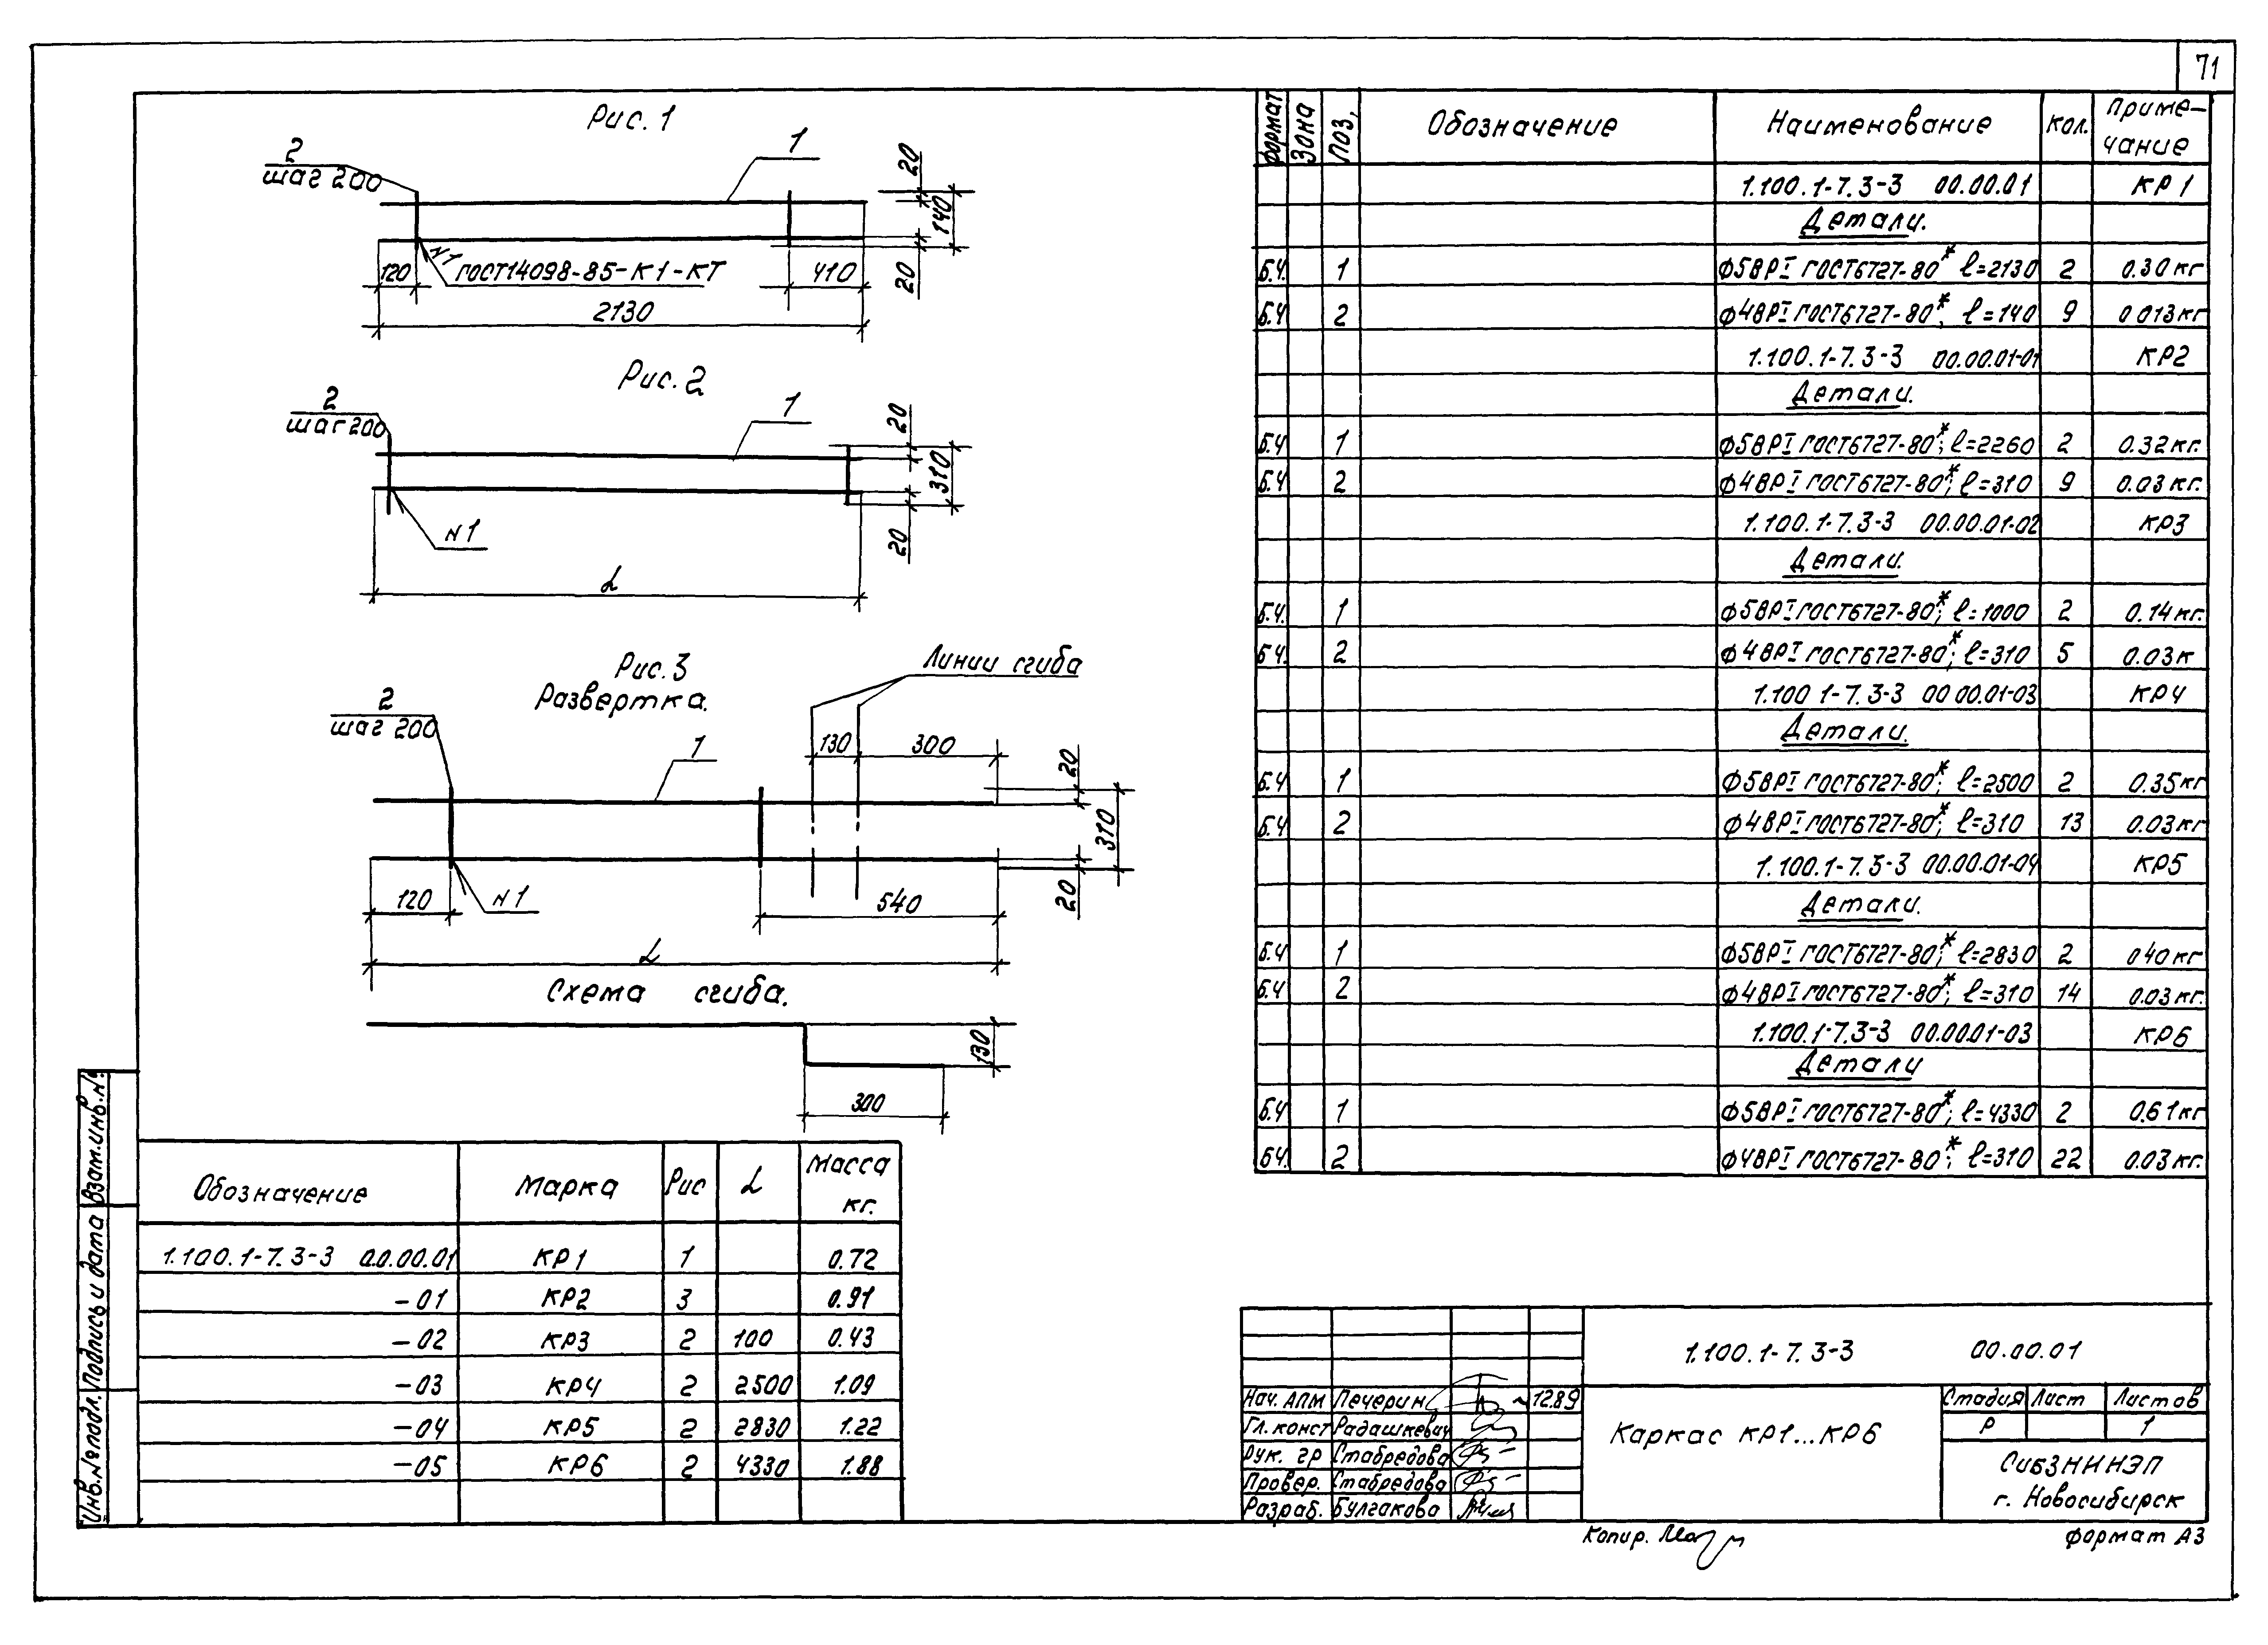 71
Рис. 1
2
шаг 200
1
20
140
20
№1
ГОСТ14098-85-К1-КТ
120
410
2130
Рис. 2
2
шаг 200
1
20
310
20
№1
L
Рис. 3
Развертка.
Линии сгиба
2
шаг 200
1
130
300
20
310
20
120
№1
540
L
Схема сгиба.
130
300
Обозначение Марка Рис L Масса кг.
1.100.1-7.3-3 00.00.01 КР1 1 0.72
-01 КР2 3 0.91
-02 КР3 2 100 0.43
-03 КР4 2 2500 1.09
-04 КР5 2 2830 1.22
-05 КР6 2 4330 1.88
Формат Зона Поз. Обозначение Наименование Кол. Приме-
чание
1.100.1-7.3-3 00.00.01 КР1
Детали.
Б.Ч. 1 ф5ВРI ГОСТ6727-80* l=2130 2 0.30кг
Б.Ч 2 ф4ВРI ГОСТ6727-80*; l=140 9 0.013кг
1.100.1-7.3-3 00.00.01-01 КР2
Детали.
Б.Ч 1 ф5ВРI ГОСТ6727-80*; l=2260 2 0.32кг.
Б.Ч 2 ф4ВРI ГОСТ6727-80*; l=310 9 0.03кг.
1.100.1-7.3-3 00.00.01-02 КР3
Детали.
Б.Ч. 1 ф5ВРI ГОСТ6727-80*; l=1000 2 0.14кг.
Б.Ч. 2 ф4ВРI ГОСТ6727-80*; l=310 5 0.03к
1.100 1-7.3-3 00 00.01-03 КР4
Детали.
Б.Ч 1 ф5ВРI ГОСТ6727-80*; l=2500 2 0.35кг
Б.Ч 2 ф4ВРI ГОСТ6727-80*; l=310 13 0.03кг
1.100.1-7.3-3 00.00.01-04 КР5
Детали.
Б.Ч 1 ф5ВРI ГОСТ6727-80*; l=2830 2 040кг
Б.Ч 2 ф4ВРI ГОСТ6727-80*; l=310 14 0.03кг.
1.100.1-7.3-3 00.00.01-03 КР6
Детали
Б.Ч 1 ф5ВРI ГОСТ6727-80*; l=4330 2 0.61кг
БЧ. 2 ф4ВРI ГОСТ6727-80*; l=310 22 0.03кг.
1.100.1-7.3-3 00.00.01
Нач. АПМ Печерин 12.89
Гл. конст Радашкевич
Рук. гр Стабредова
Провер. Стабредова
Разраб. Булгакова
Каркас КР1...КР6
Стадия Лист Листов
Р 1
СибЗНИИЭП
г. Новосибирск
Копир.
Формат А3
Взам.инв.№
Подпись и дата
Инв.№ подл.